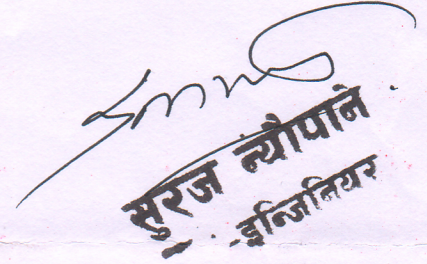 सुरज न्यौपाने
इन्जिनियर